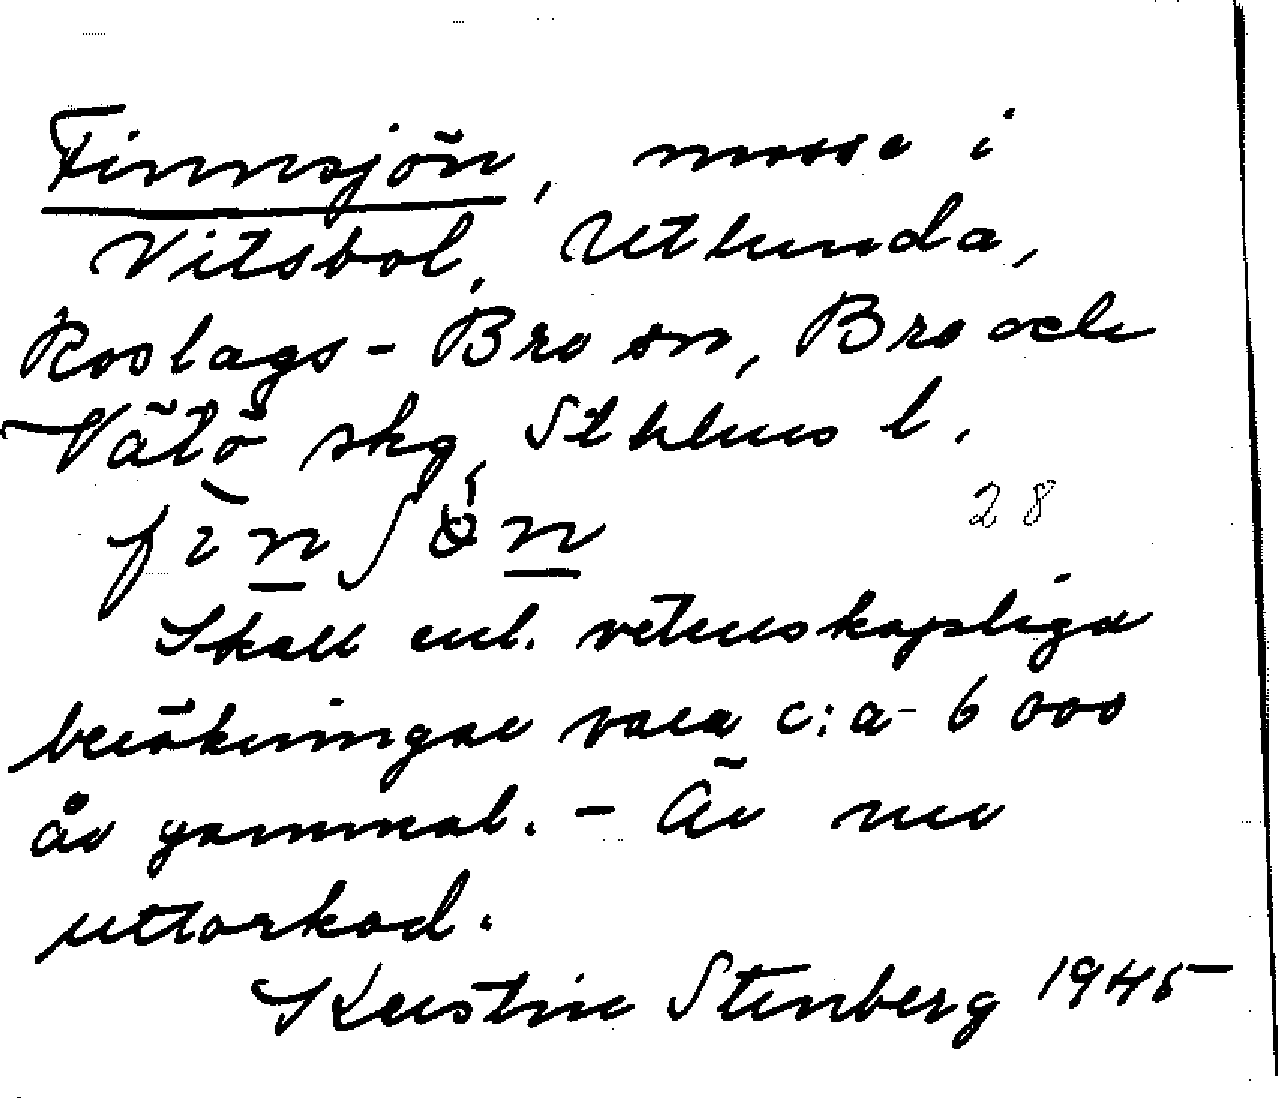 Finnsjön, mosse i
Vitsbol, Utlunda,
Roslags-Bro sn, Bro och
Vätö skg, Sthlms l.
fìn∫ø̀n 28
Skall enl. vetenskapliga
beräkningar vara c:a 6 000
år gammal. - Är nu
uttorkad.
Kerstin Stenberg 1945